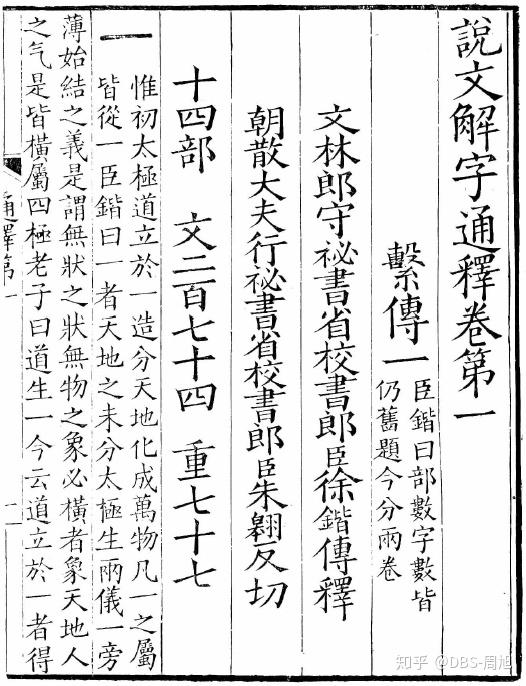 說文解字通釋卷第一
繫傳一
臣鍇曰部數字數皆
仍舊題今分兩卷
文林郎守祕書省校書郎臣徐鍇傳釋
朝散大夫行祕書省校書郎臣朱翱反切
十四部 文二百七十四 重七十七
一
惟初太極道立於一造分天地化成萬物凡一之屬
皆從一臣鍇曰一者天地之未分太極生兩儀一旁
薄始結之義是謂無狀之狀無物之象必橫者象天地人
之气是皆橫屬四極老子曰道生一今云道立於一者得
通釋第一
一
知乎 @DBS-周旭